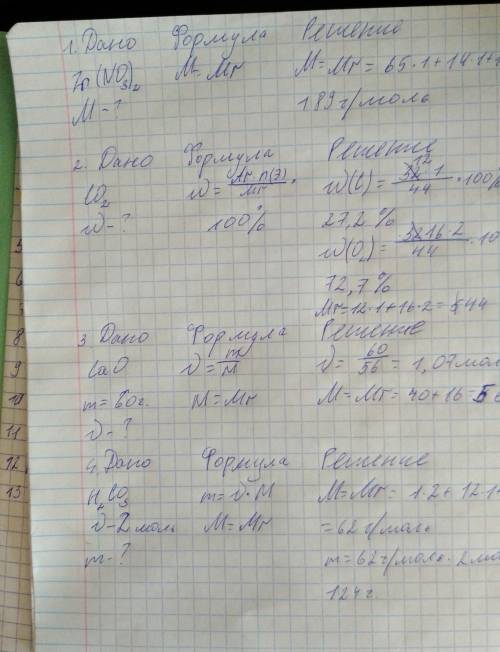 1. Дано Формула Решение
Zn(NO3)2 M=Mr M=Mr=65·1+14·1+
M-? 189 г/моль
2. Дано Формула Решение
CO2 w=Ar·n(Э)/Mr· w(C)=12·1/44·100%
w-? 100% 27,2%
w(O2)=16·2/44·10
72,7%
5
6
7
Mr=12·1+16·2=44
8 3 Дано Формула Решение
9 CaO ν=m/M ν=60/56=1,07мол
10 m=60г. M=Mr M=Mr=40+16=56
11 ν-?
12 4 Дано Формула Решение
13 H2CO3 m=ν·M M=Mr=1·2+12·1+
ν-2 моль M=Mr =62 г/моль
m-? m=62г/моль·2мо
124г.